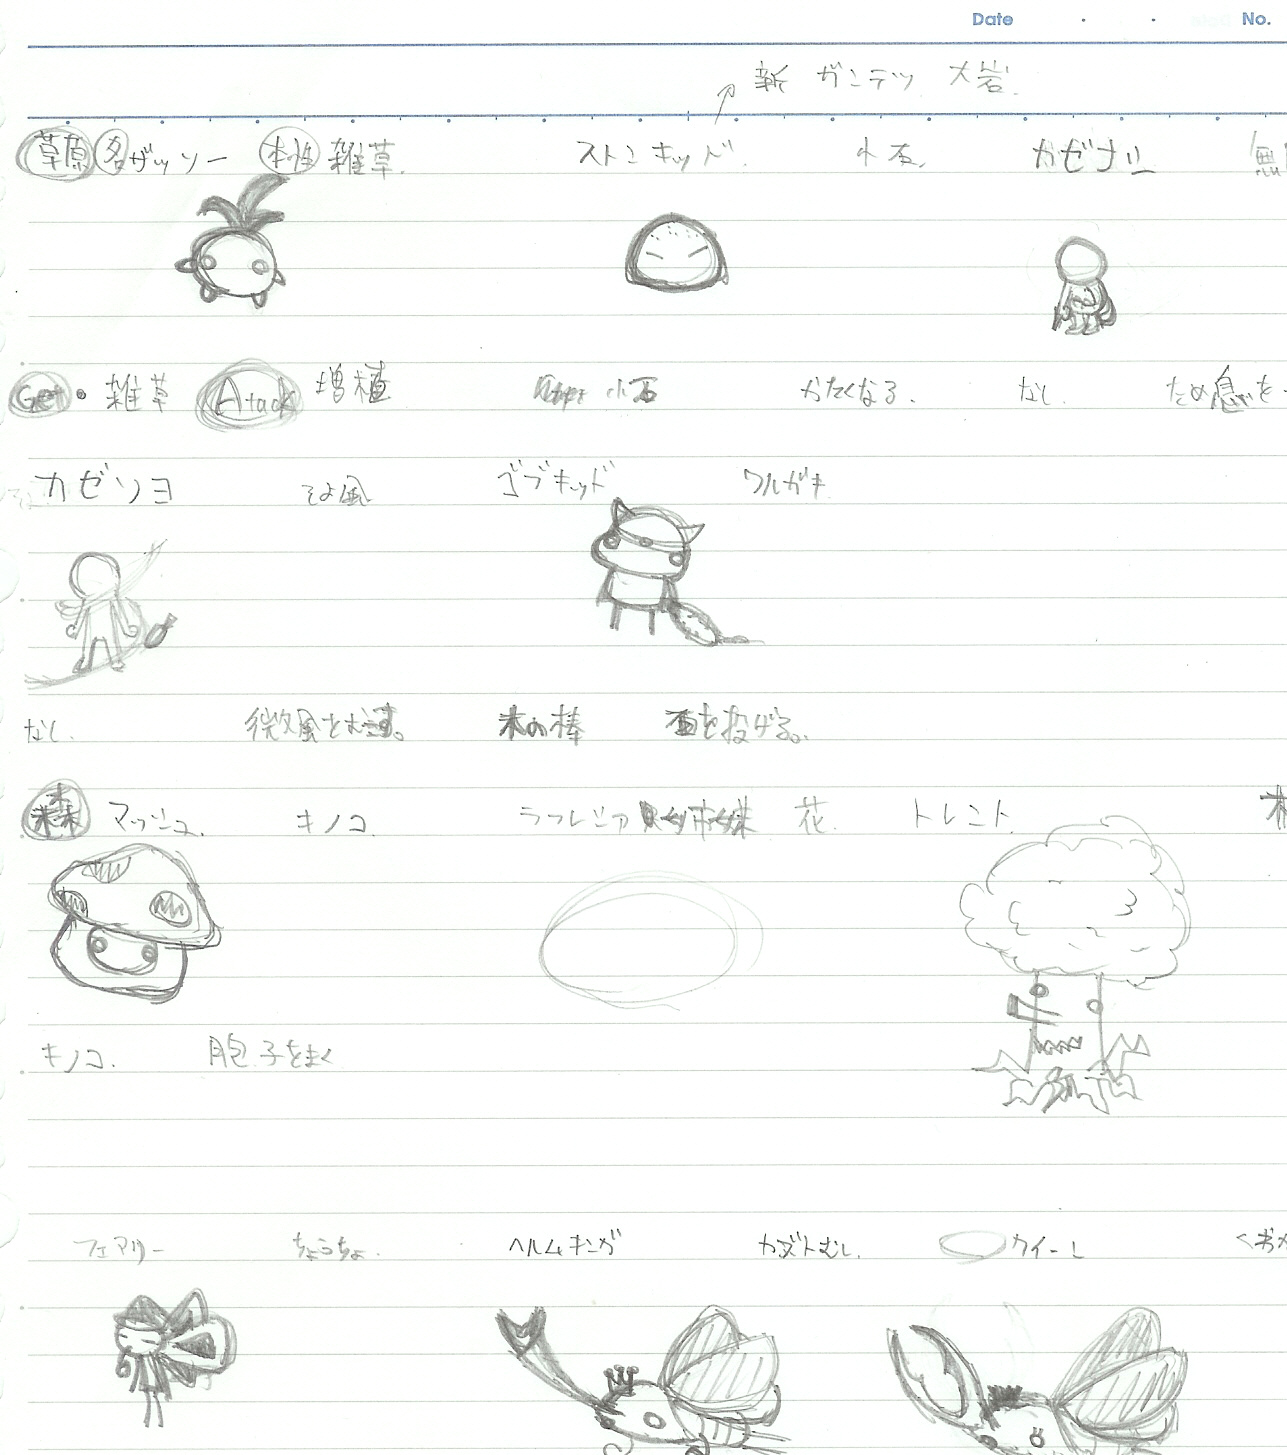 Date ・ ・ No.
新 ガンテツ 大岩
草原 名 ザッソー 本性 雑草 ストンキッド 小石 カゼナリ 無
Get・雑草 Atack 増植 小石 かたくなる。 なし ため息を
カゼソヨ そよ風 ゴブキッド ワルガキ
なし 微風をおこす。 木の棒 石を投げる。
森 マッシュ キノコ ラフレシア 姉妹 花 トレント 木
キノコ 胞子をまく
フェアリー ちょうちょ ヘルムキング カブトむし クイーン くわが